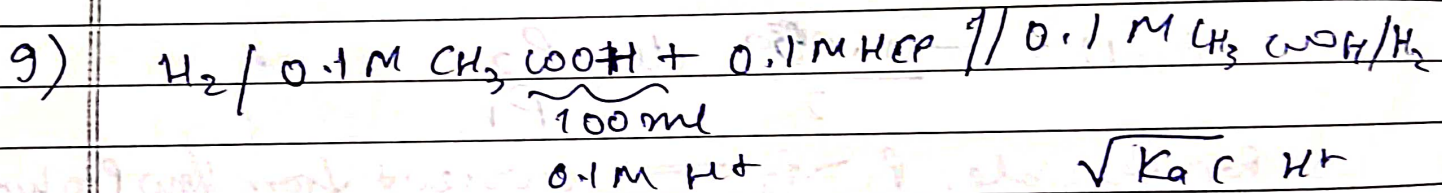 9) H₂ / 0.1 M CH₃ COOH + 0.1 M HCl // 0.1 M CH₃ COOH / H₂
100 ml
0.1 M H+ √Ka C H+